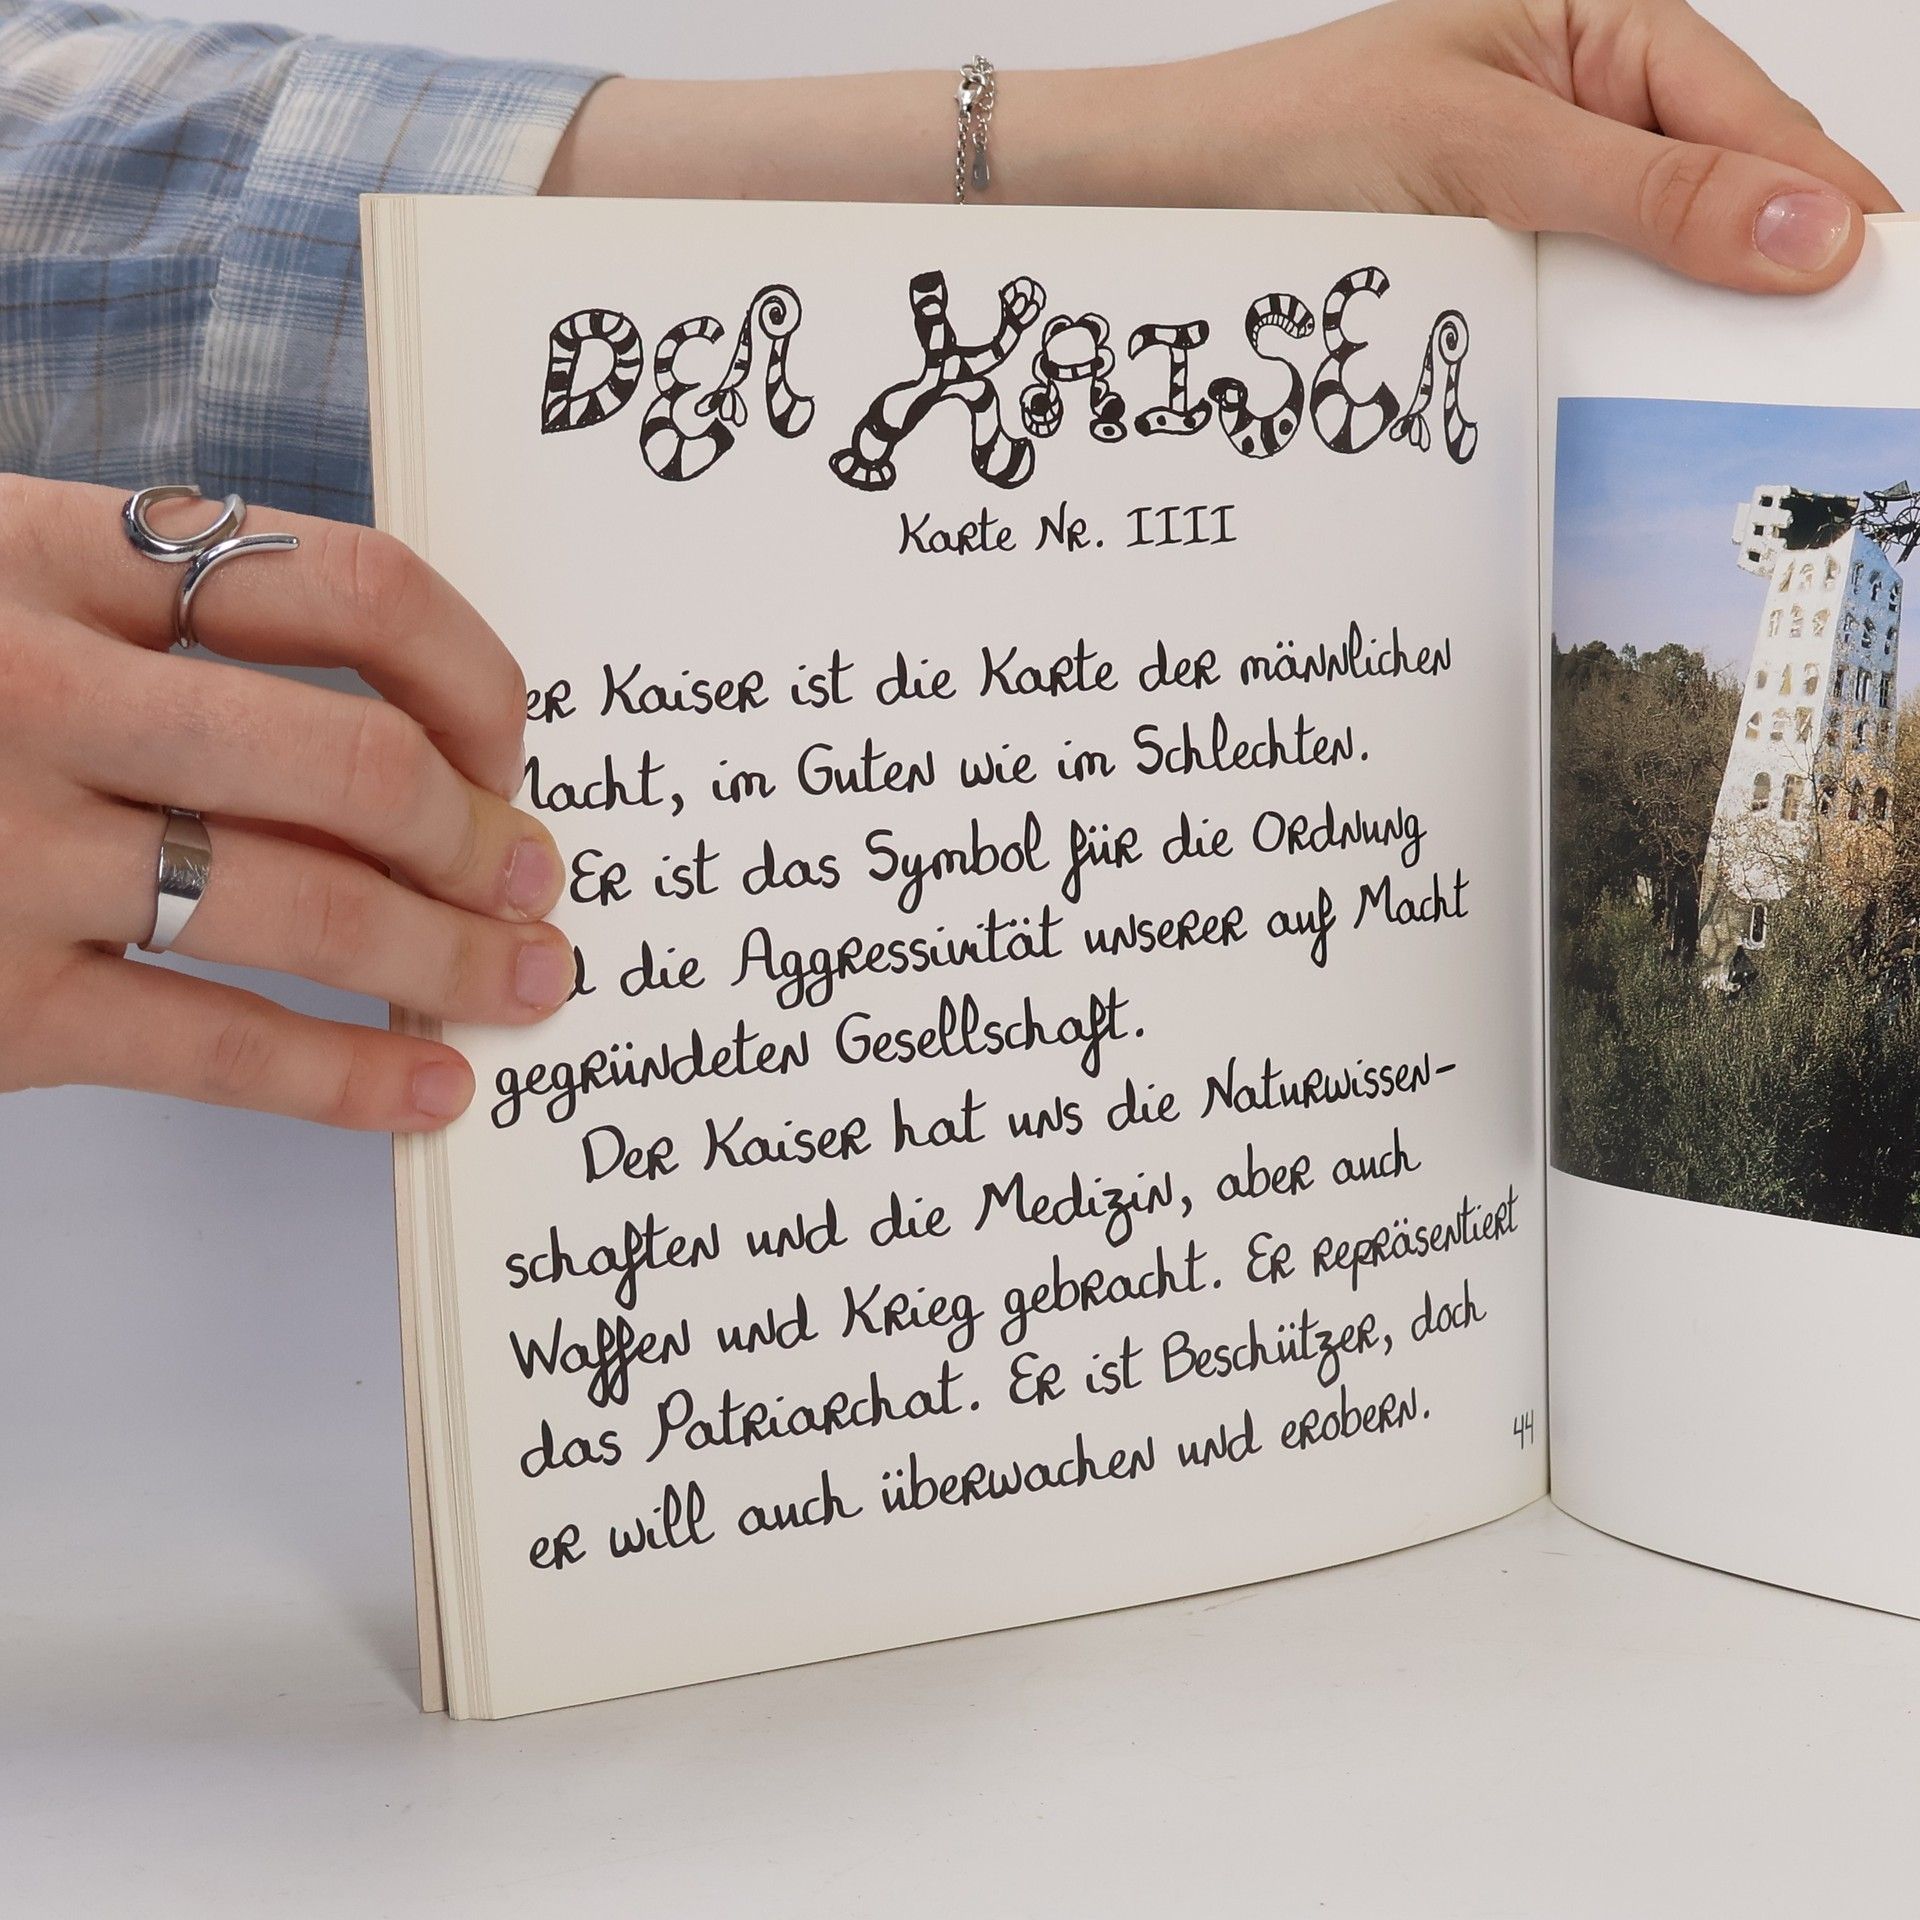 DER KAISER
Karte Nr. IIII
er Kaiser ist die Karte der männlichen
Macht, im Guten wie im Schlechten.
Er ist das Symbol für die Ordnung
d die Aggressivität unserer auf Macht
gegründeten Gesellschaft.
Der Kaiser hat uns die Naturwissen-
schaften und die Medizin, aber auch
Waffen und Krieg gebracht. Er repräsentiert
das Patriarchat. Er ist Beschützer, doch
er will auch überwachen und erobern.
44